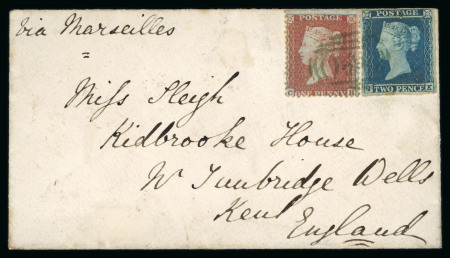 via Marseilles
POSTAGE
ONE PENNY
POSTAGE
TWO PENCE
Miss Sleigh
Kidbrooke House
Nr Tunbridge Wells
Kent
England